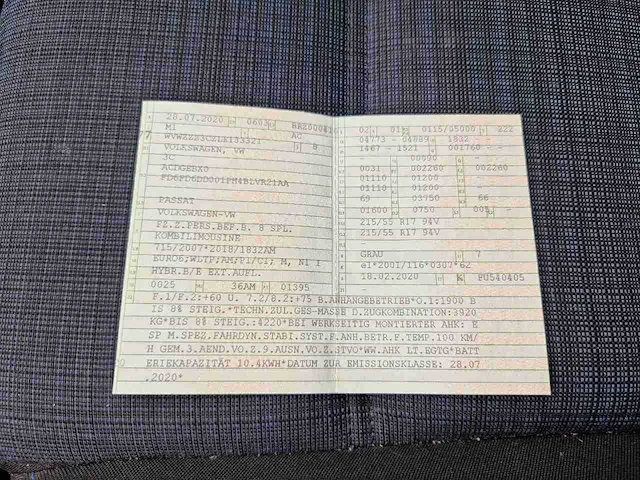 28.07.2020 0603 BRZ000410
M1 AC
WVWZZZ3CZLE133321 8
VOLKSWAGEN, VW
3C
ACDGEBX0
FD6FD6DD001PH4BLVR21AA
PASSAT
VOLKSWAGEN-VW
FZ.Z.PERS.BEF.B. 8 SPL.
KOMBILIMOUSINE
715/2007*2018/1832AM
EURO6;WLTP;AM/PI/CI; M, N1 I
HYBR.B/E EXT.AUFL.
0025 36AM 01395
02 01 0115/05000 222
04773 - 04889 1832 -
1467 - 1521 001760 -
- 00090 - -
0031 002260 002260
01110 01200 -
01110 01200 -
69 03750 66
01600 0750 005
215/55 R17 94V
215/55 R17 94V
GRAU 7
e1*2001/116*0307*62
18.02.2020 K PU540405
F.1/F.2:+60 U. 7.2/8.2:+75 B.ANHANGEBETRIEB*O.1:1900 B
IS 8% STEIG.*TECHN.ZUL.GES-MASSE D.ZUGKOMBINATION:3920
KG*BIS 8% STEIG.:4220*BEI WERKSEITIG MONTIERTER AHK: E
SP M.SPEZ.FAHRDYN.STABI.SYST.F.ANH.BETR.F.TEMP.100 KM/
H GEM.3.AEND.VO.Z.9.AUSN.VO.Z.STVO*WW.AHK LT.EGTG*BATT
ERIEKAPAZITÄT 10.4KWH*DATUM ZUR EMISSIONSKLASSE: 28.07
.2020*